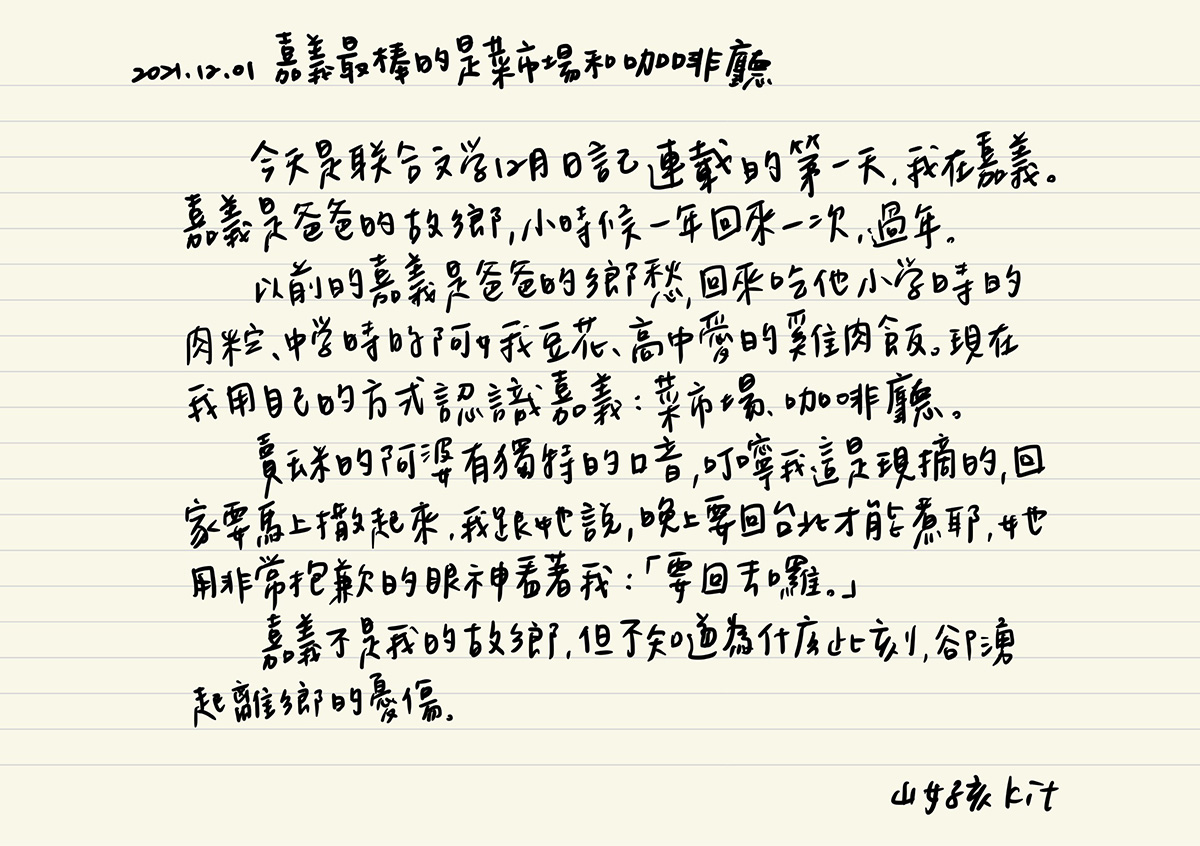 2021.12.01 嘉義最棒的是菜市場和咖啡廳
今天是联合文学12月日記連載的第一天,我在嘉義。
嘉義是爸爸的故鄉,小時候一年回來一次,過年。
以前的嘉義是爸爸的鄉愁,回來吃他小学時的
肉粽、中学時的阿娥豆花、高中愛的雞肉飯。現在
我用自己的方式認識嘉義:菜市場、咖啡廳。
賣玉米的阿婆有獨特的口音,叮嚀我這是現摘的,回
家要馬上撒起來,我跟她說,晚上要回台北才能煮耶,她
用非常抱歉的眼神看著我:「要回去囉。」
嘉義不是我的故鄉,但不知道為什么此刻,卻湧
起離鄉的憂傷。
山女孩kit